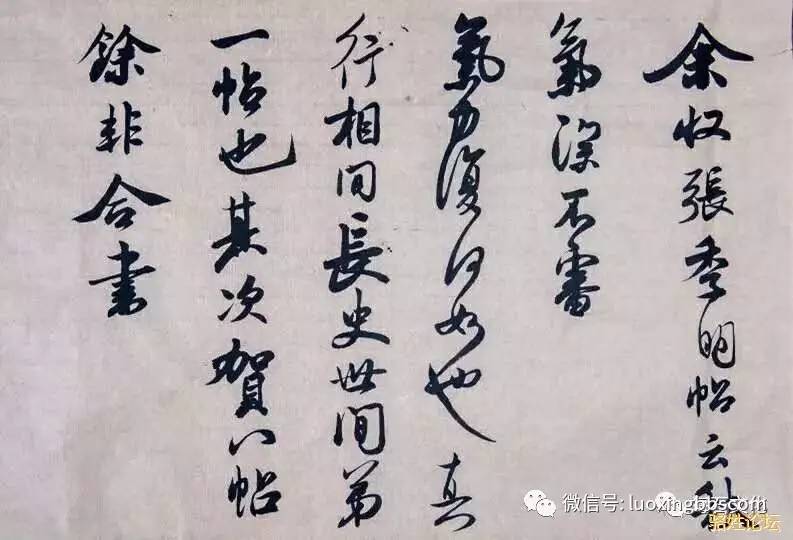 余收張季明帖云秋
氣深不審
氣力復何如也真
行相間長史世間第
一帖也其次賀八帖
餘非合書
微信号: luoxingbbscom
骆姓论坛